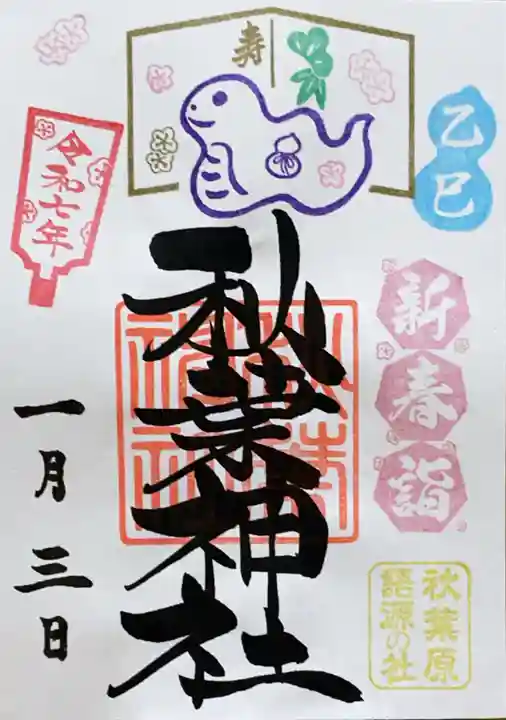 寿
乙巳
令和七年
新春詣
秋葉神社
一月三日
秋葉原
語源の社